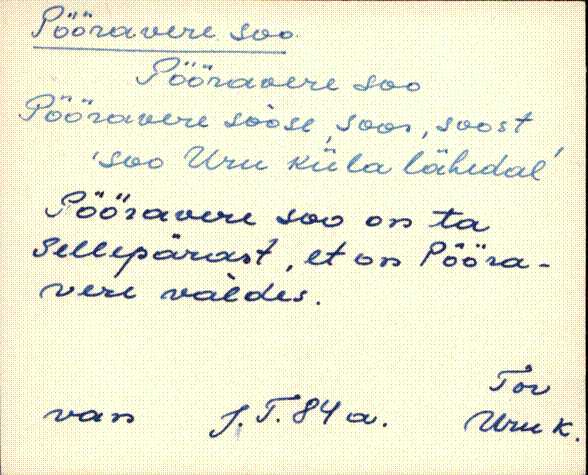 Pööravere soo
Pööravere soo
Pööravere sòose, soos, soost
'soo Uru küla lähedal'
Pööravere soo on ta
sellepärast, et on Pööra-
vere vàldes.
Tor
van J.T. 84 a. Uru k.